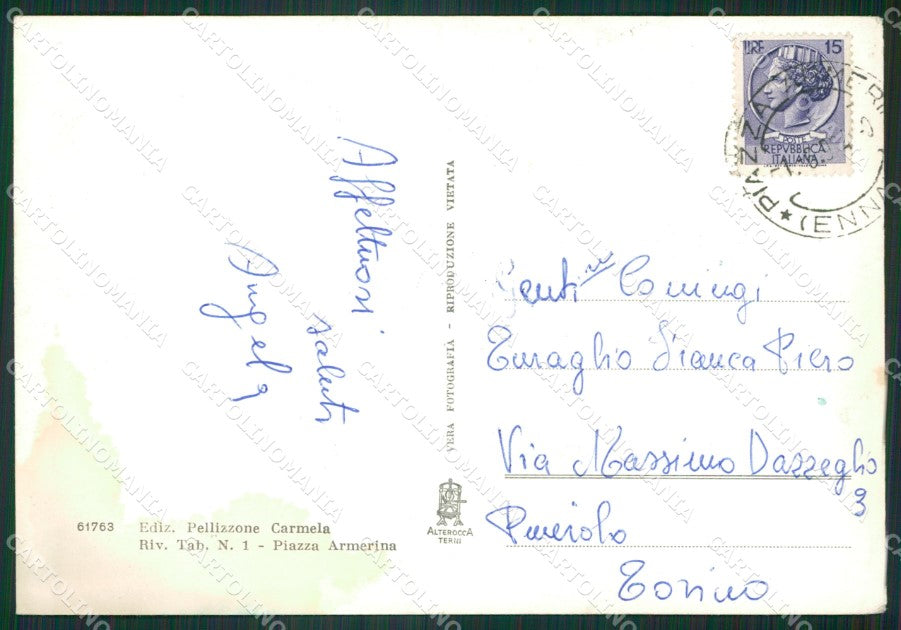 Affettuosi
saluti
Angela
VERA FOTOGRAFIA - RIPRODUZIONE VIETATA
LIRE 15
POSTE
REPVBBLICA
ITALIANA
PIAZZA ARMERINA
(ENNA)
Coniugi
Turaglio Franca Piero
Via Massimo Dazzeglio
9
Pinerolo
Torino
ALTEROCCA
TERNI
61763 Ediz. Pellizzone Carmela
Riv. Tab. N. 1 - Piazza Armerina
CARTOLINOMANIA